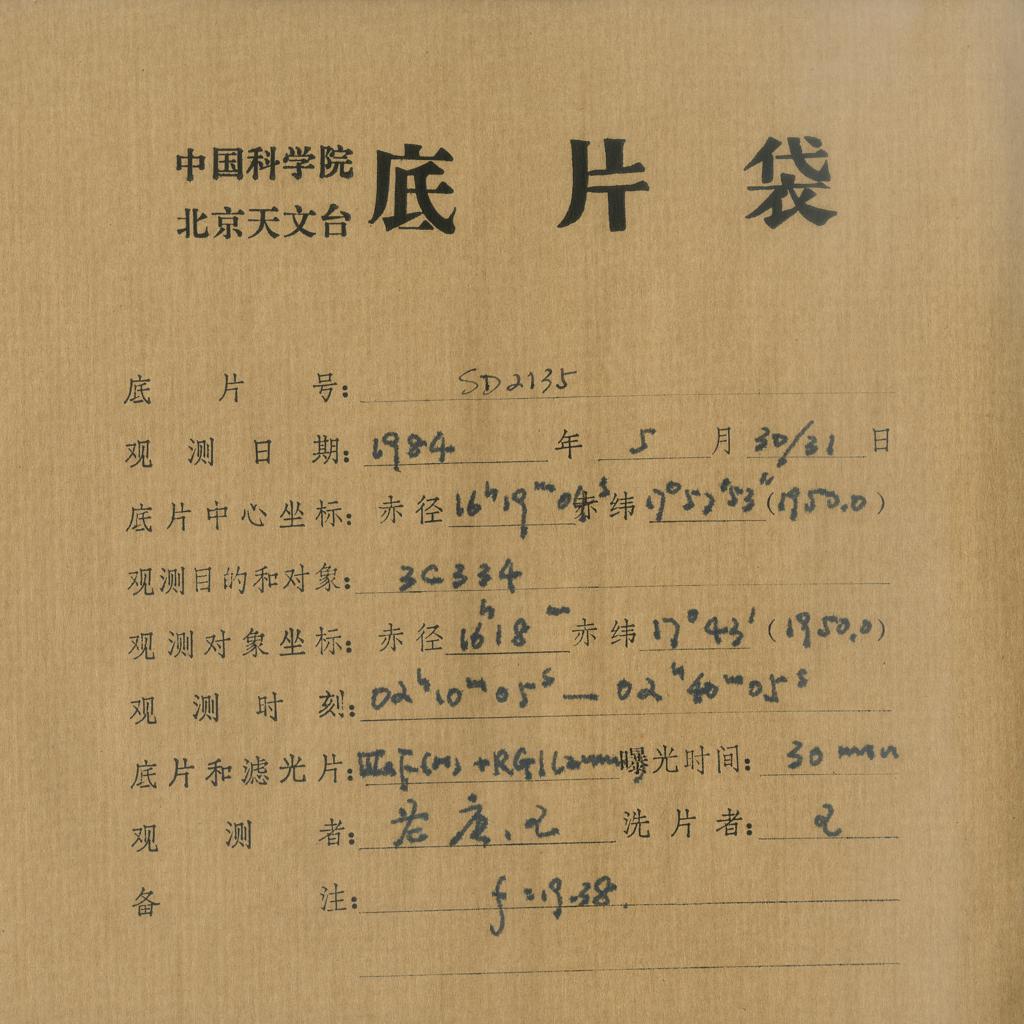 中国科学院
北京天文台
底片袋
底片号: SD2135
观测日期: 1984年 5月 30/31日
底片中心坐标: 赤径 16h19m04s 赤纬 17°52′53″(1950.0)
观测目的和对象: 3C334
观测对象坐标: 赤径 16h18m 赤纬 17°43′(1950.0)
观测时刻: 02h10m05s — 02h40m05s
底片和滤光片: IIIaF(N2)+RG1(2mm) 曝光时间: 30 min
观测者: 洗片者:
备注: f=19.38.